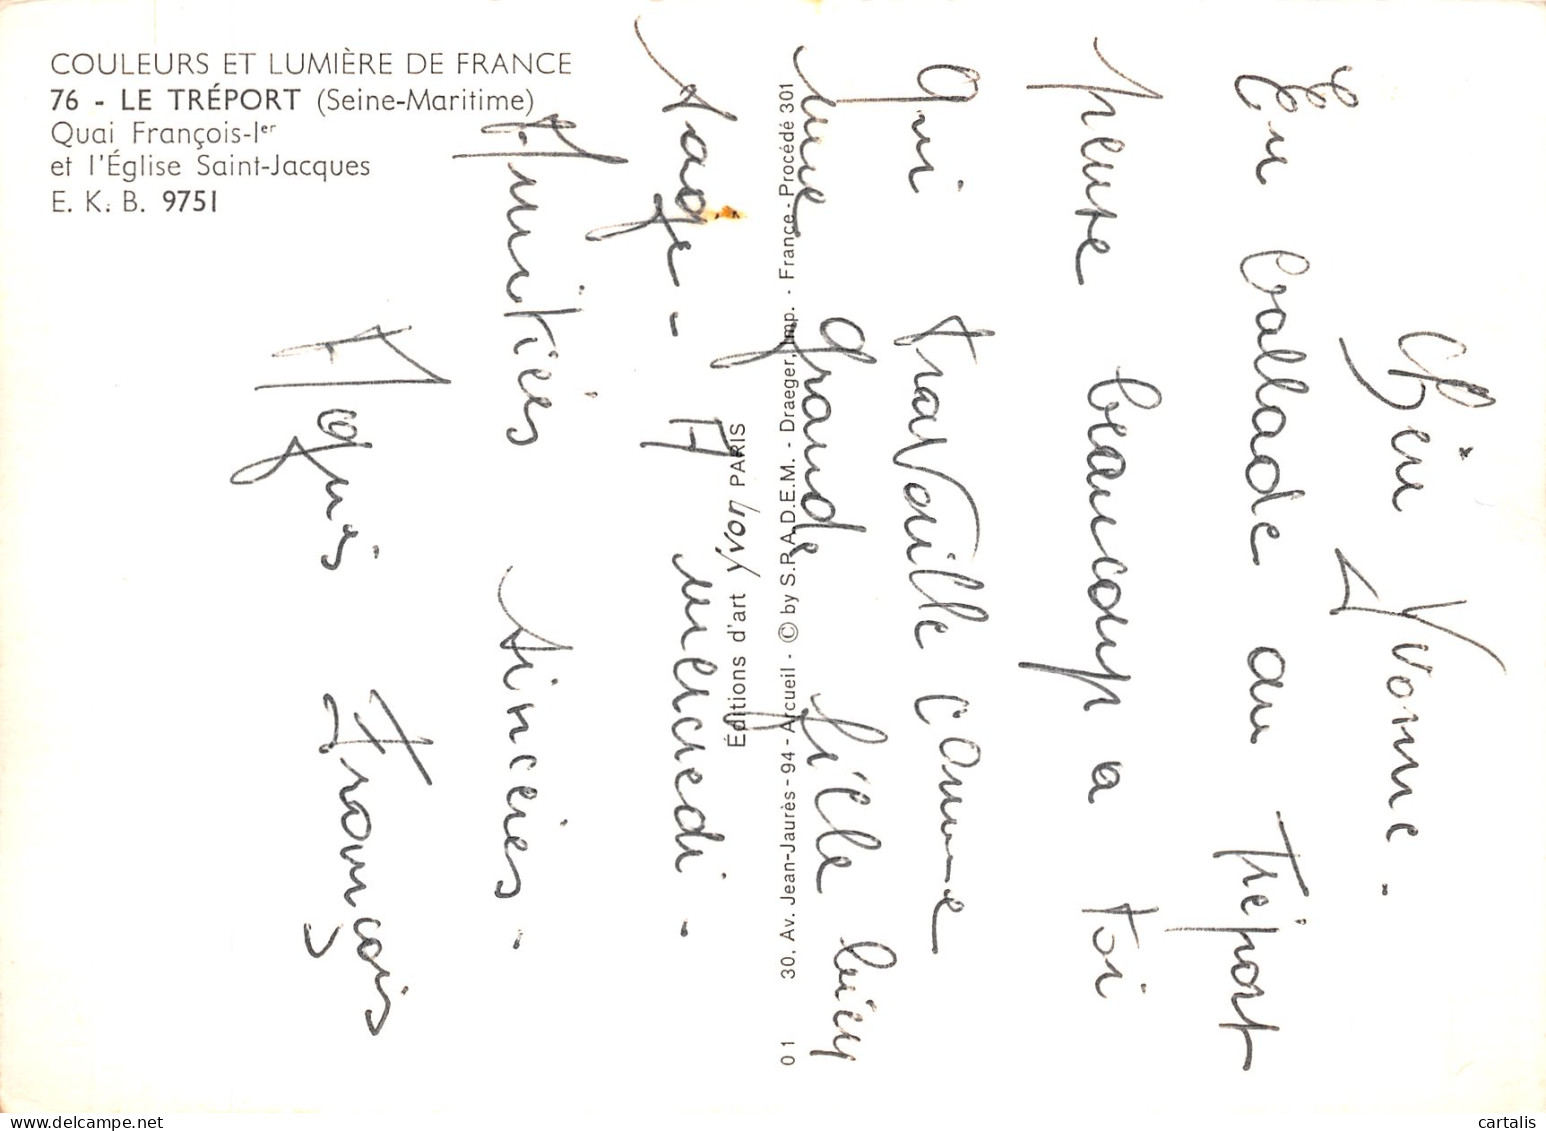 COULEURS ET LUMIÈRE DE FRANCE
76 - LE TRÉPORT (Seine-Maritime)
Quai François-Ier
et l'Église Saint-Jacques
E. K. B. 9751
Éditions d'art Yvon PARIS
30, Av. Jean-Jaurès - 94 - Arcueil - © by S.P.A.D.E.M. - Draeger, Imp. - France - Procédé 301
01
Yvonne.
En ballade au Tréport
pense beaucoup a toi
Qui travaille comme
une grande fille bien
sage - A mercredi.
Amitiés sincères.
Agnès François
cartalis.com